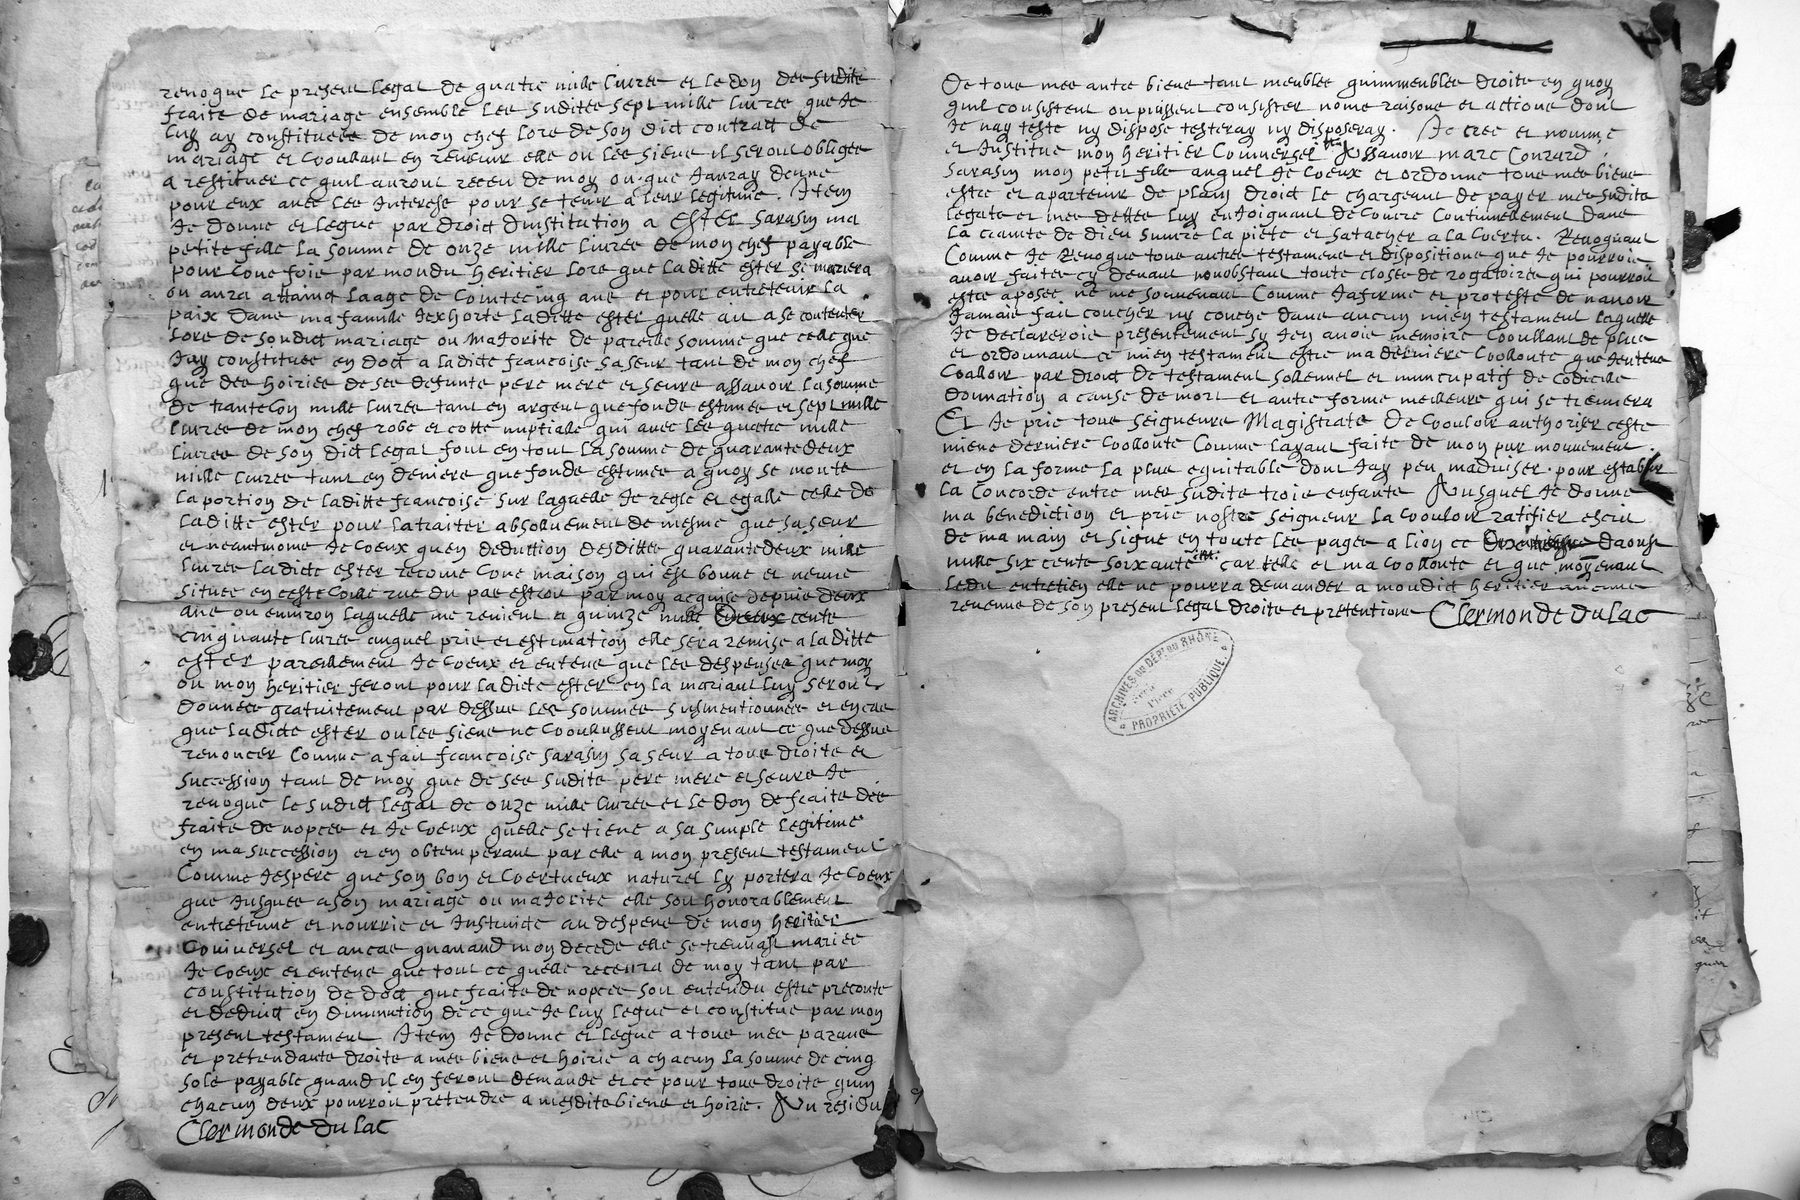 revoque le present legat de quatre mille livres et le don des sudits
fraits de mariage ensemble les sudittes sept mille livres que Je
luy ay constituees de mon chef lors de son dict contract de
mariage et voullant en revenir elle ou les siens il seront obliges
a restituer ce quil auront receu de moy ou que Jauray donne
pour eux avec les Interests pour se tenir a leur legitime. Item
Je donne et legue par droict dinstitution a Ester Sarasin ma
petite fille la somme de onze mille livres de mon chef payable
pour une fois par mondit heritier lors que laditte ester se mariera
ou aura attaint laage de vintecinq ans et pour entretenir la
paix dans ma famille Jexhorte laditte ester quelle ait a se contenter
lors de sondict mariage ou Majorite de pareille somme que celle que
Jay constituee en doct a ladicte francoise sa seur tant de mon chef
que des hoiries de ses defunts pere mere et seurs assavoir la somme
de trante un mille livres tant en argent que fonds estimes et sept mille
livres de mon chef robe et cotte nuptialle qui avec les quatre mille
livres de son dict legat font en tout la somme de quarante deux
mille livres tant en deniers que fonds estimes a quoy se monte
la portion de laditte francoise sur laquelle Je regle et egalle celle de
laditte ester pour la traiter absoluement de mesme que sa seur
et neantmoins Je veux quen deduttion desdittes quarante deux mille
livres ladicte ester recoive une maison qui est bonne et neuve
situee en ceste ville rue du par moy acquise depuis deux
ans ou environ laquelle me revient a quinze mille cents
cinquante livres auquel prix et estimation elle sera remise a laditte
ester pareillement Je veux et entens que les despenses que moy
ou mon heritier feront pour ladicte ester en la mariant luy seront
donnees gratuitement par dessus les sommes susmentionnees et en cas
que ladicte ester ou les siens ne voulussent moyenant ce que dessus
renoncer comme a fait francoise sarasin sa seur a tous droits et
succession tant de moy que de ses sudits pere mere et seurs Je
revoque le sudict legat de onze mille livres et le don de fraits des
fraits de nopces et Je veux quelle se tiene a sa simple legitime
en ma succession et en obtemperant par elle a mon present testament
Comme Jespere que son bon et vertueux naturel ly portera Je veux
que Jusques a son mariage ou majorite elle soit honorablement
entretenue et nourrie et Instruite au despens de mon heritier
universel et en cas quanand mon decede elle se treuvast mariee
Je veux et entens que tout ce quelle recevra de moy tant par
constitution de doct que fraits de nopces soit entendu estre preconte
et deduict en diminution de ce que Je luy legue et constitue par mon
present testament Item Je donne et legue a tous mes parans
et pretendants droits a mes biens et hoirie a chacun la somme de cinq
sols payable quand il en feront demande et ce pour tous droits quun
chacun deux pourroit pretendre a mesdits biens et hoirie. Au residu
Clermonde du lac
De tous mes autre biens tant meubles quimmeubles droits en quoy
quil consistent ou puissent consister noms raisons et actions dont
Je nay teste ny dispose testeray ny disposeray. Je cree et nomme
et Institue mon heritier universel Assavoir marc Conrard
Sarasin mon petit fils auquel Je veux et ordonne tous mes biens
estre et apartenir de plain droict le chargeant de payer mes sudits
legats et mes dettes luy enjoignant de vivre continuellement dans
la crainte de dieu suivre la piete et satacher a la vertu. Revoquant
Comme Je Revoque tous autres testaments et dispositions que Je pourrois
avoir faites cy devant nonobstant toute closes de rogatoires qui pourroit
estre aposee ne me souvenant Comme Jafirme et proteste de navoir
Jamais fait coucher ny couche dans aucun mien testament laquelle
Je declarerois presentement sy Jen avois memoire voullant de plus
et ordonnant ce mien testament estre ma derniere vollonte que Jentens
valloir par droict de testament sollennel et nuncupatif de Codicille
donnation a cause de mort et autre forme meilleure qui se treuvera
Et Je prie tous seigneurs Magistrats de vouloir authoriser ceste
miene derniere vollonte Comme layant faite de mon pur mouvement
et en la forme la plus equitable dont Jay peu maduiser. pour establir
la Concorde entre mes sudits trois enfants Ausquel Je donne
ma benediction et prie nostre Seigneur la vouloir ratifier escrit
de ma main et signe en toute les pages a lion ce daoust
mille six cents soixante car telle et ma vollonte et que moyenant
ledit entretien elle ne pourra demander a mondict heritier aucuns
revenus de son present legat droits et pretentions Clermonde du lac
ARCHIVES DU DÉPT DU RHÔNE
PROPRIÉTÉ PUBLIQUE